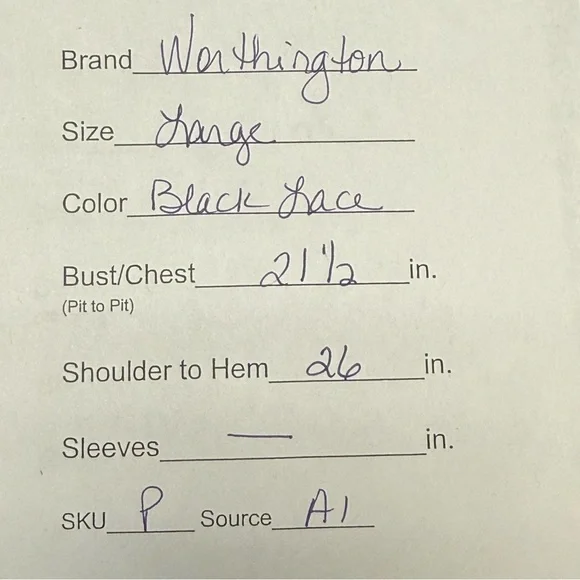 Brand Worthington
Size Large
Color Black Lace
Bust/Chest 21 1/2 in.
(Pit to Pit)
Shoulder to Hem 26 in.
Sleeves — in.
SKU P Source A1